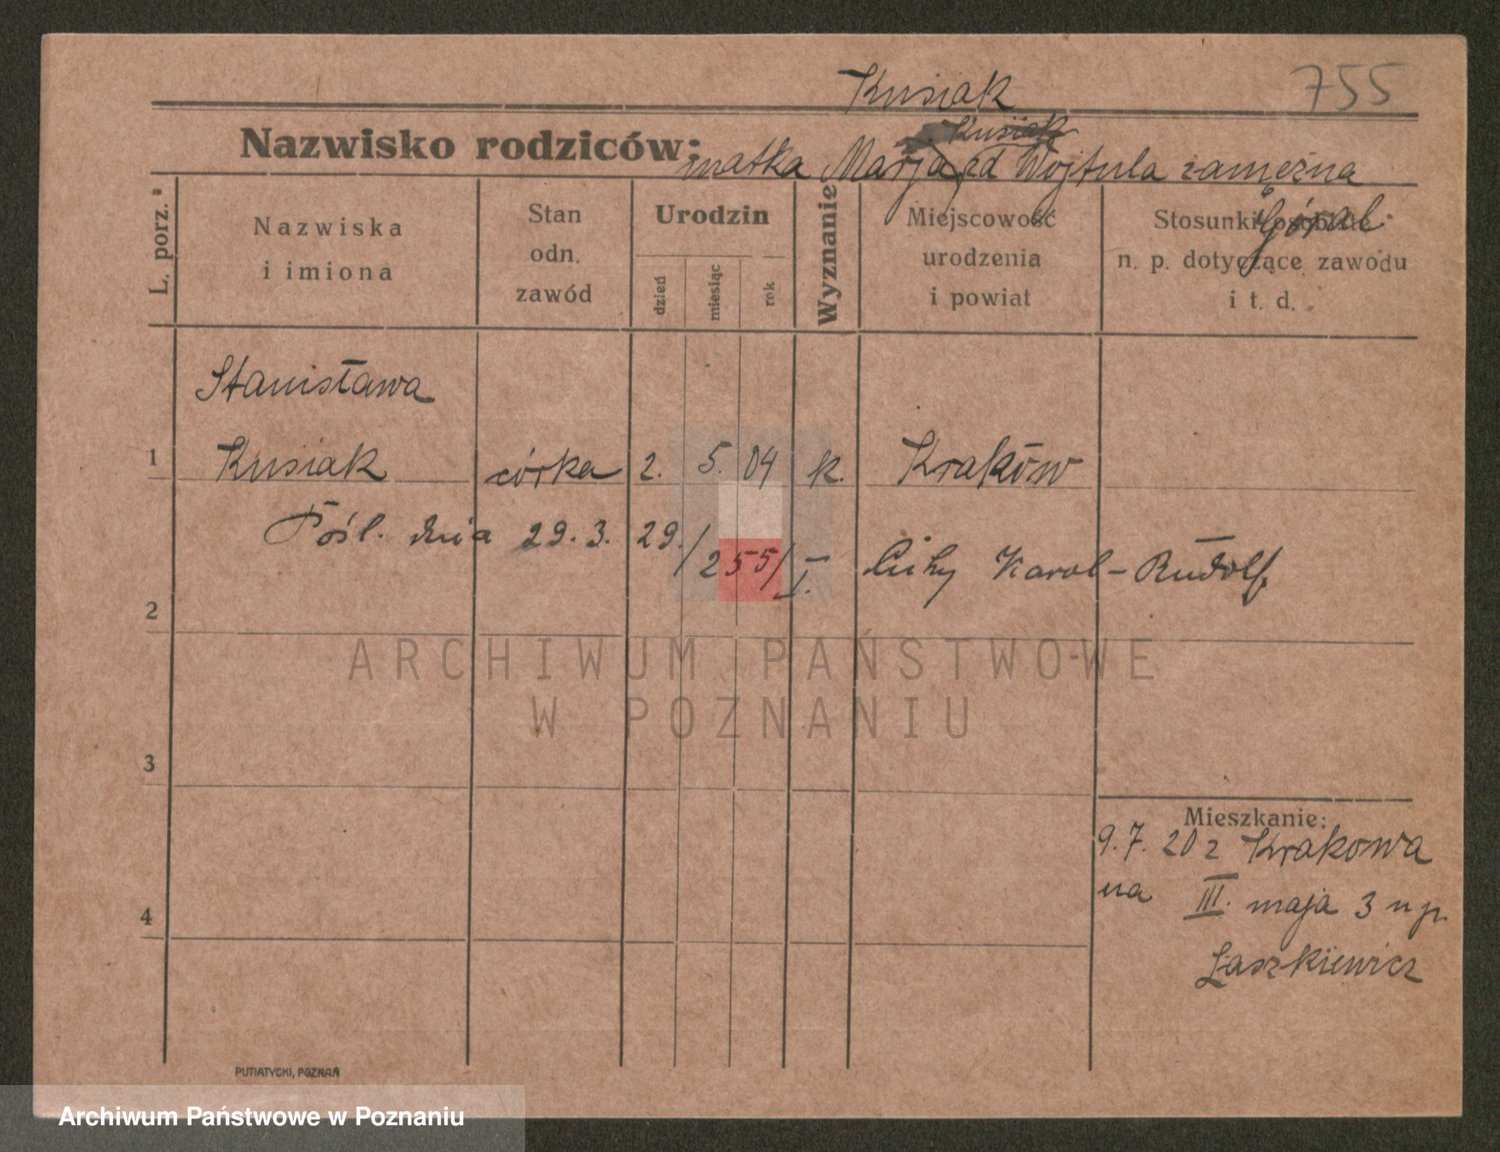 Kusiak 755
Nazwisko rodziców: Kusiak
matka Marja zd Wojtula zamężna
Góral.
L. porz.
Nazwiska
i imiona
Stan
odn.
zawód
Urodzin
dzień
miesiąc
rok
Wyznanie
Miejscowość
urodzenia
i powiat
Stosunki osobiste
n. p. dotyczące zawodu
i t. d.
Stanisława
1 Kusiak córka 2. 5. 04 k. Kraków
Pośl. dnia 29. 3. 29./255/I. Cichy Karol-Rudolf
2
ARCHIWUM PAŃSTWOWE
W POZNANIU
3
Mieszkanie:
9. 7. 20 z Krakowa
na III. maja 3 u p.
4
Laszkiewicz
PUTIATYCKI, POZNAŃ
Archiwum Państwowe w Poznaniu